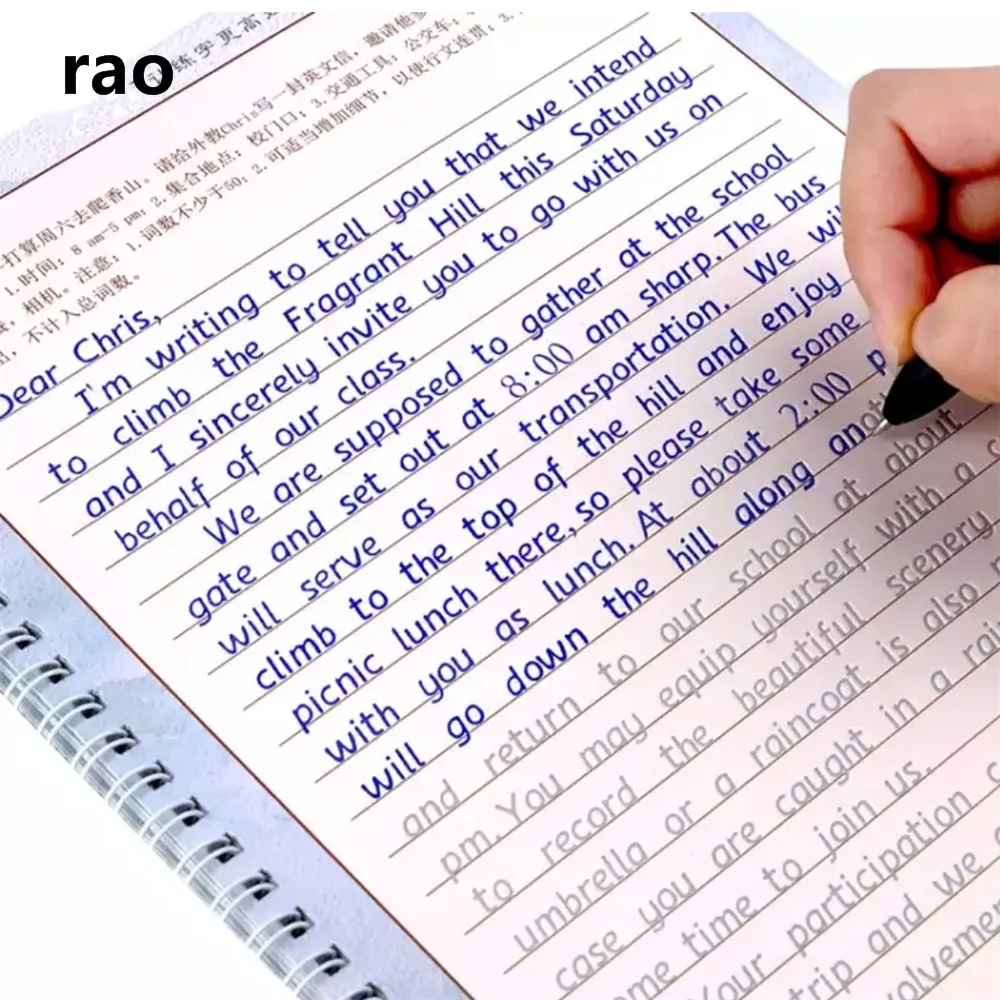 rao
练字更高
打算周六去爬香山。请给外教Chris写一封英文信，邀请他
1.时间：8 am-5 pm；2.集合地点：校门口；3.交通工具：公交车；
相机。注意：1.词数不少于50；2.可适当增加细节，以使行文连贯；3.
不计入总词数。
Dear Chris,
I'm writing to tell you that we intend
to climb the Fragrant Hill this Saturday
and I sincerely invite you to go with us on
behalf of our class.
We are supposed to gather at the school
gate and set out at 8:00 am sharp. The bus
will serve as our transportation. We will
climb to the top of the hill and enjoy
picnic lunch there, so please take some
with you as lunch. At about 2:00 p
will go down the hill along anoth
and return to our school at about
pm. You may equip yourself with a c
to record the beautiful scenery
umbrella or a raincoat is also n
case you are caught in a rai
ome time to join us.
Your participation
trip and we
volvemen